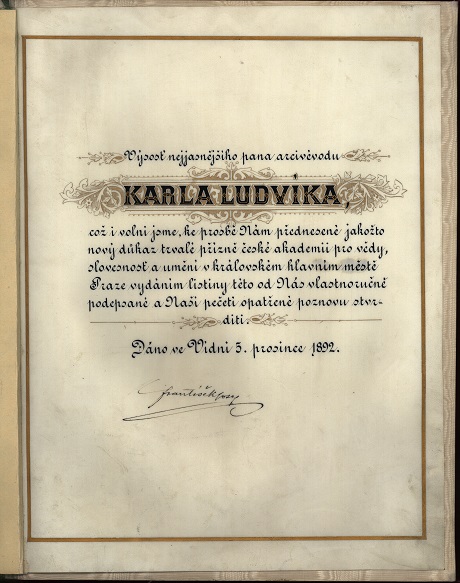 Výsosť nejjasnějšího pana arcivévodu
KARLA LUDVÍKA,
což i volni jsme, ke prosbě Nám přednesené jakožto
nový důkaz trvalé přízně české akademii pro vědy,
slovesnosť a umění v královském hlavním městě
Praze vydáním listiny této od Nás vlastnoručně
podepsané a Naší pečetí opatřené poznovu stvr-
diti.
Dáno ve Vídni 5. prosince 1892.
František Josef